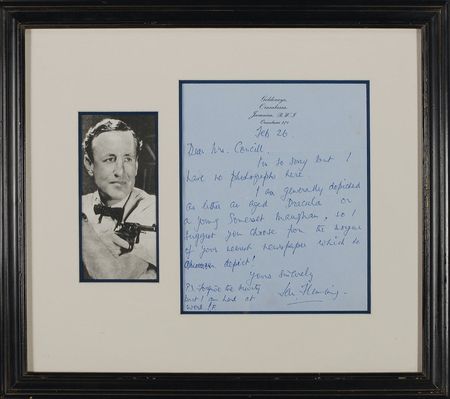 Goldeneye,
Oracabessa
Jamaica. B.W.I
Feb 26.
Dear Mrs.
I'm so sorry but I
have no photographs here.
I am generally depicted
as either an aged Dracula or
a young Somerset Maugham, so I
suggest you choose from the
of your nearest newspaper which to
depict!
Yours sincerely
Ian Fleming.
P.S. Forgive the brevity
but I am hard at
work I.F.